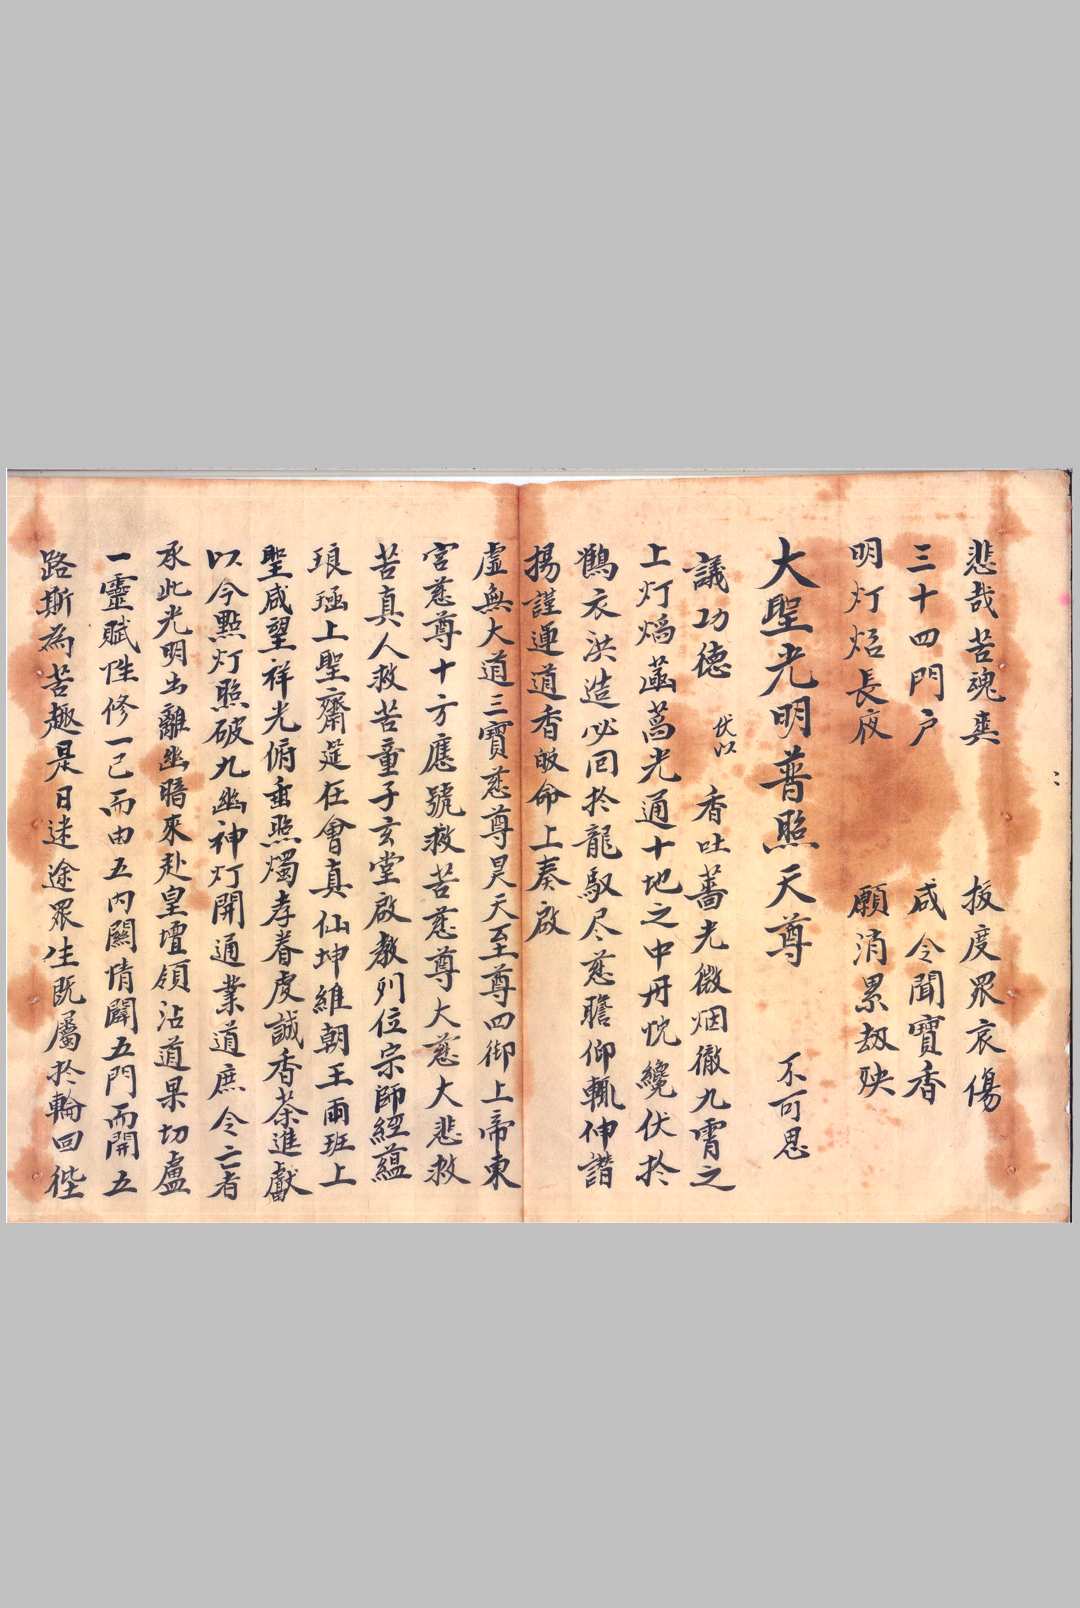 悲哉苦魂爽　拔度眾哀傷
三十四門户　咸令聞寶香
明灯炤長夜　願消累劫殃
大聖光明普照天尊　不可思
議功德　伏以　香吐蕾光微烟徹九霄之
上灯㷄菡萏光通十地之中丹忱纔伏扵
鶴衣洪造必回扵龍馭尽慈瞻仰輒伸讚
揚謹運道香皈命上奏啟
虛無大道三寶慈尊昊天至尊四御上帝東
宮慈尊十方應號救苦慈尊大慈大悲救
苦真人救苦童子玄堂啟教列位宗師經蘊
琅函上聖齋筵在會真仙坤維朝王両班上
聖咸望祥光俯垂照燭孝眷虔誠香茶進獻
以今點灯照破九幽神灯開通業道庶令亡者
承此光明出離幽暗來赴皇壇領沾道果切盧
一靈賦性修一已而由五内關情闢五門而開五
路斯為苦趣是日迷途眾生既屬扵輪回徃